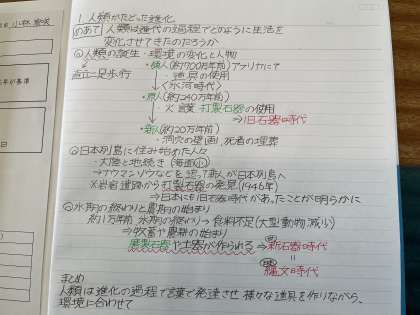 1 人類がたどった進化
めあて 人類は進化の過程でどのように生活を
変化させてきたのだろうか
①人類の誕生・環境の変化と人物
・猿人(約700万年前)アフリカにて
直立二足歩行 道具の使用
<氷河時代>
・原人(約240万年前)
火 言葉 打製石器の使用
⇒旧石器時代
・新人(約20万年前)
・洞穴の壁画、死者の埋葬
②日本列島に住み始めた人々
・大陸と地続き(海面㊦)
→ナウマンゾウなどを追って新人が日本列島へ
※岩宿遺跡から打製石器の発見(1946年)
→日本にも旧石器時代があったことが明らかに
③氷河の終わりと農耕の始まり
約1万年前 氷河の終わり→食料不足(大型動物減少)
⇒牧畜や農耕の始まり
磨製石器や土器が作られる⇒新石器時代
=
縄文時代
まとめ
人類は進化の過程で言葉で発達させ 様々な道具を作りながら、
環境に合わせて